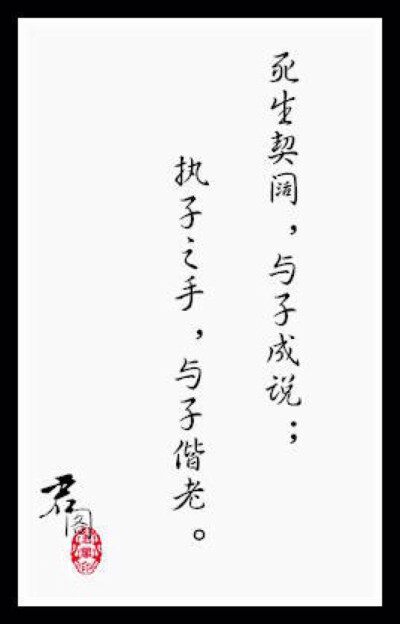 死生契阔，与子成说；
执子之手，与子偕老。
君阁